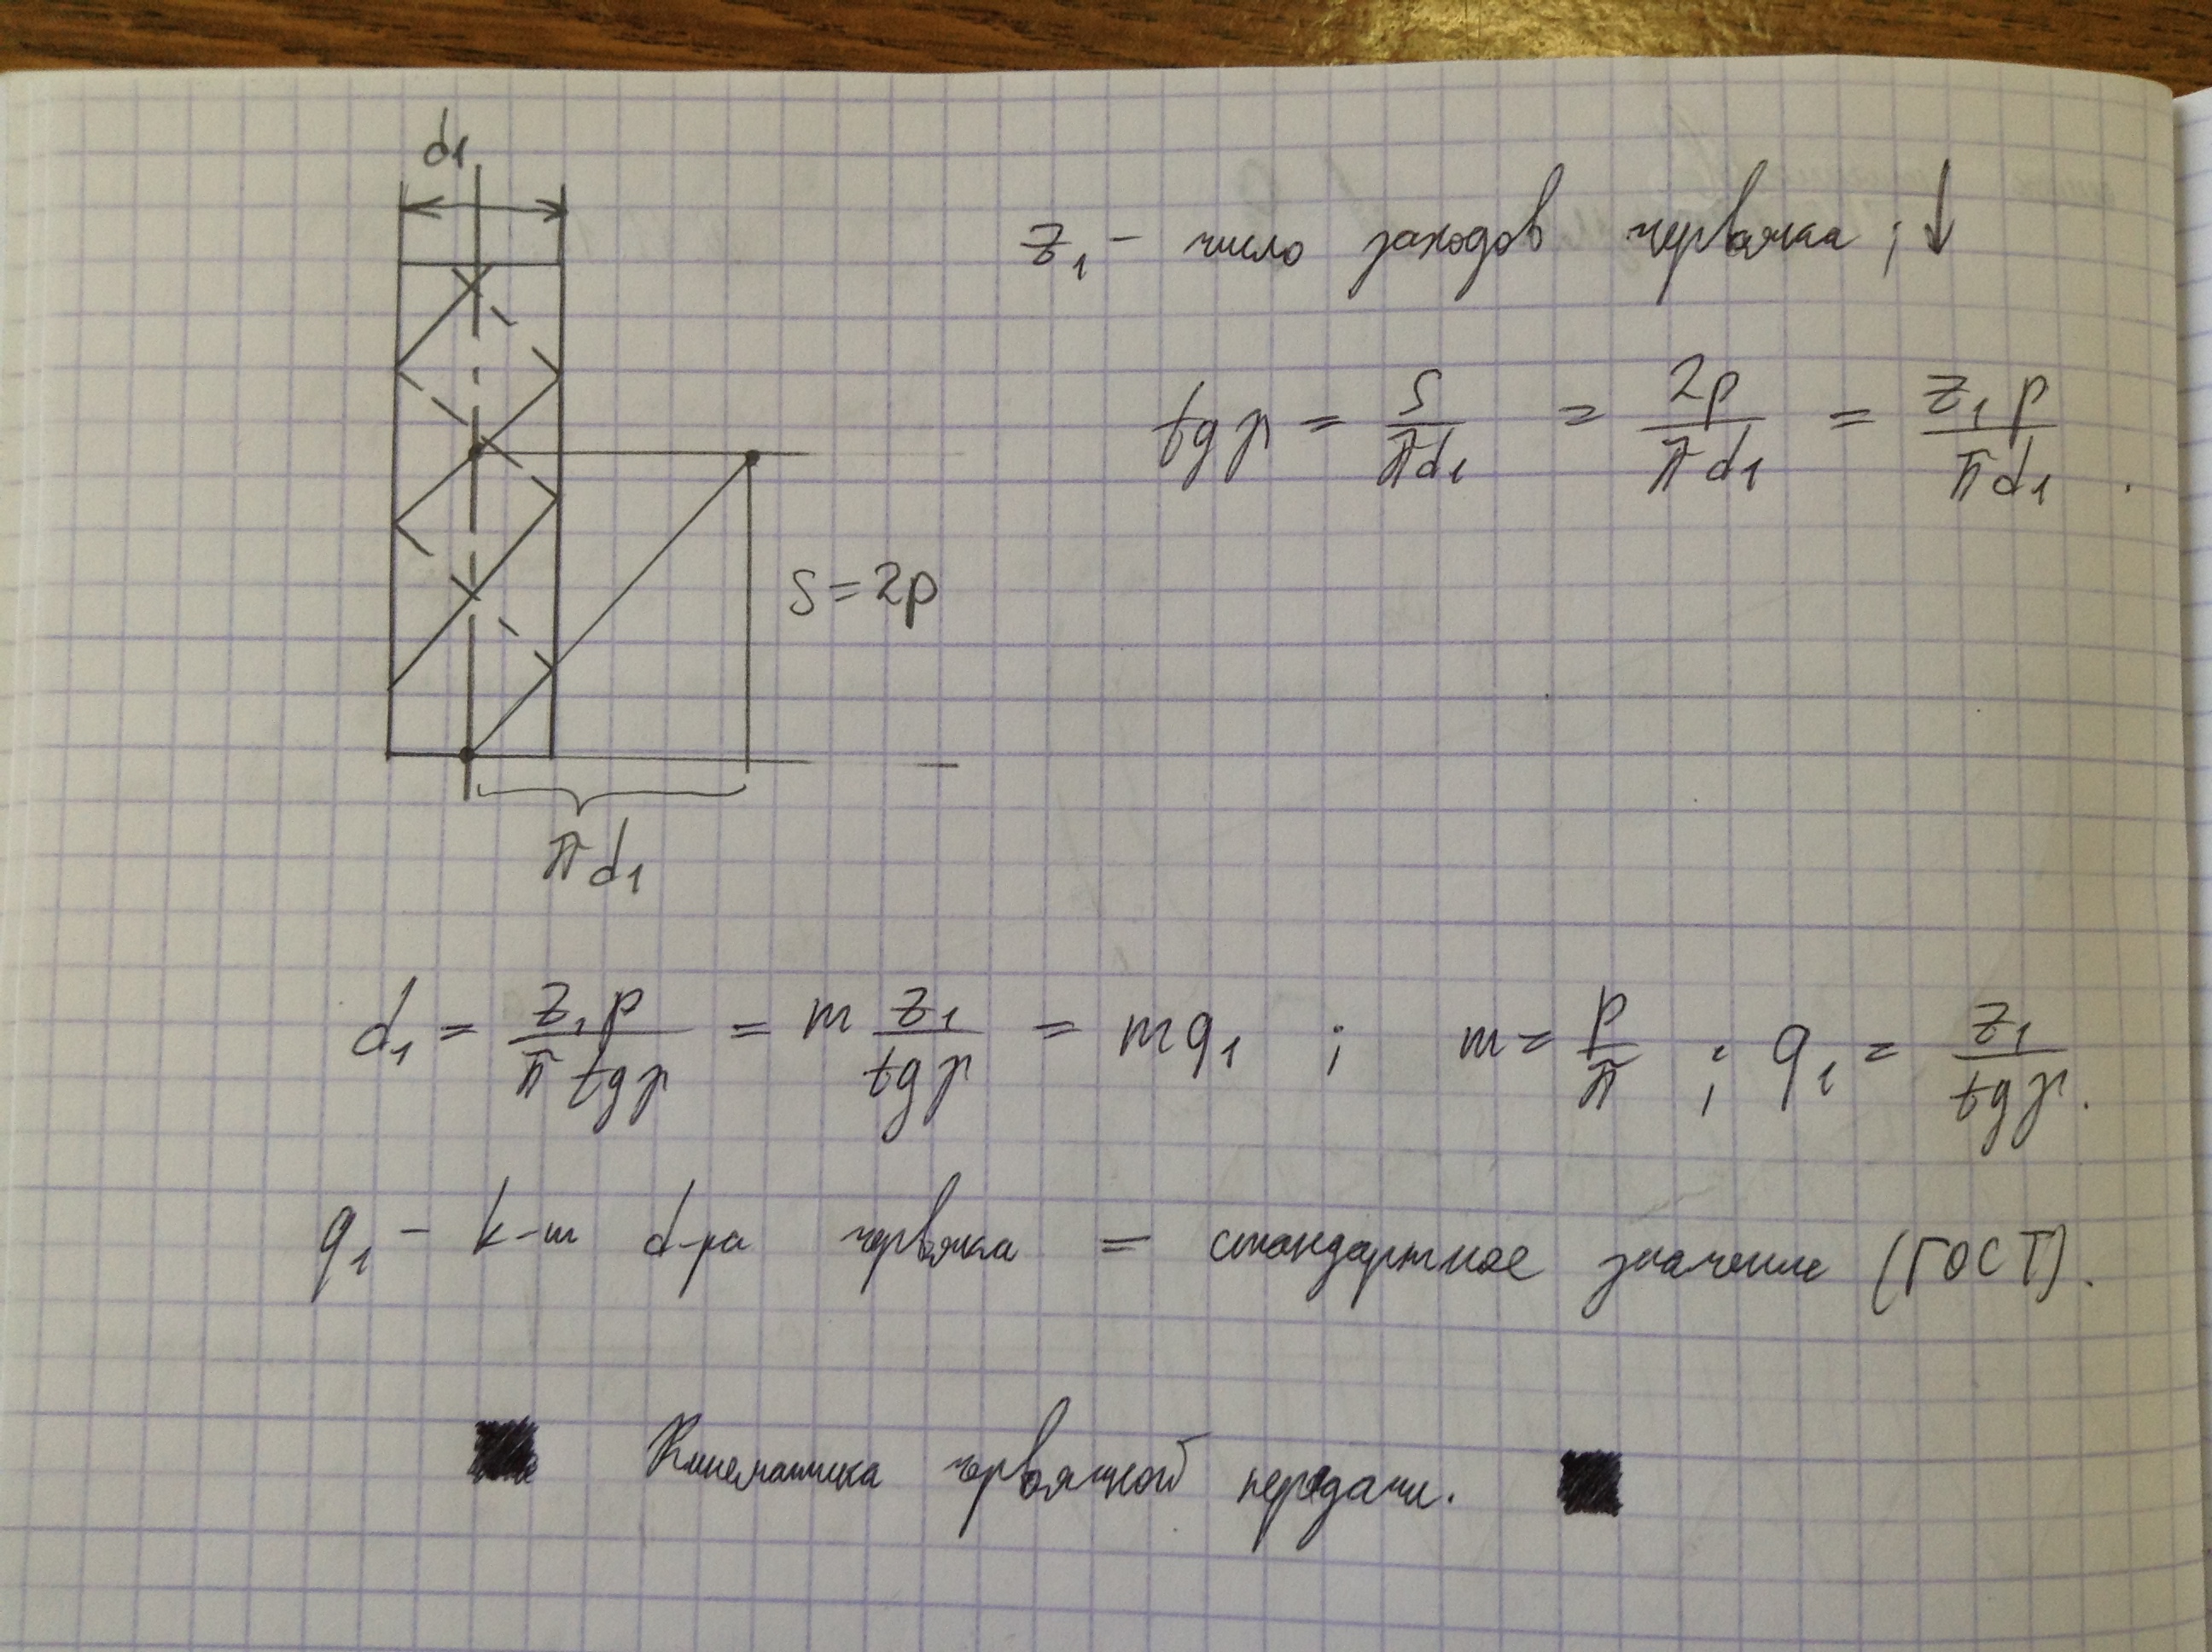 d₁
z₁ - число заходов червяка ; ↓
tg γ = s/(πd₁) = 2p/(πd₁) = z₁p/(πd₁) .
s = 2p
πd₁
d₁ = z₁p/(π tg γ) = m z₁/(tg γ) = mq₁ ; m = p/π ; q₁ = z₁/(tg γ).
q₁ - k-т d-ра червяка = стандартное значение (ГОСТ).
Кинематика червячной передачи.